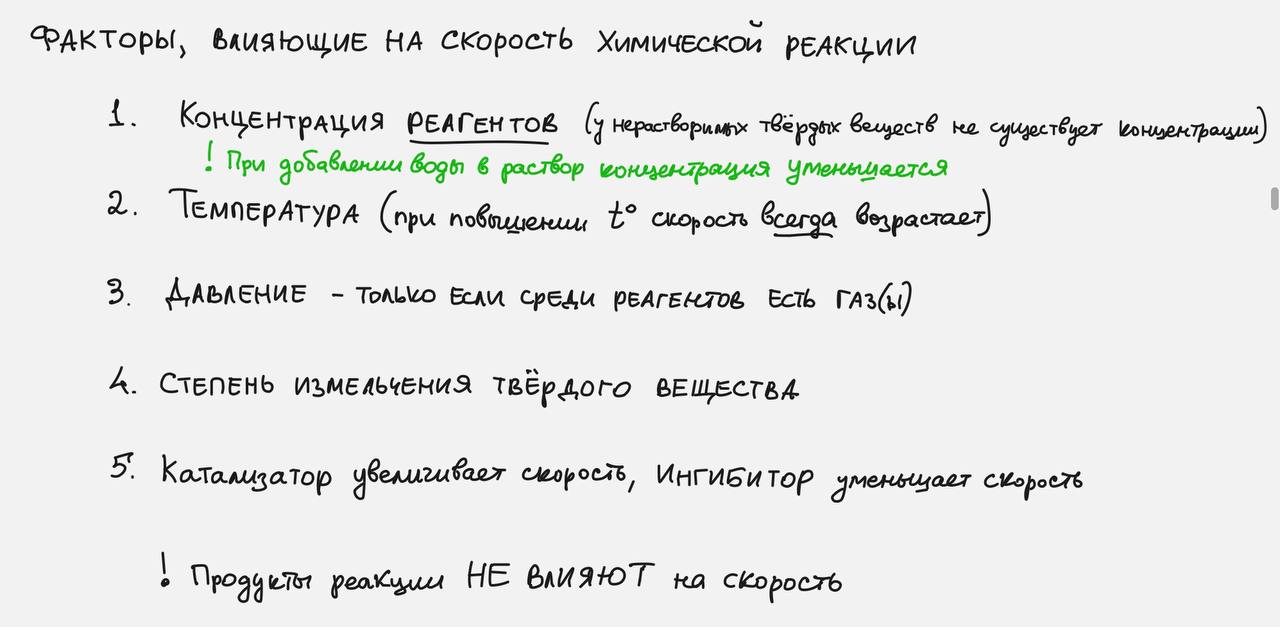 ФАКТОРЫ, ВЛИЯЮЩИЕ НА СКОРОСТЬ ХИМИЧЕСКОЙ РЕАКЦИИ
1. КОНЦЕНТРАЦИЯ РЕАГЕНТОВ (у нерастворимых твёрдых веществ не существует концентрации)
! При добавлении воды в раствор концентрация уменьшается
2. ТЕМПЕРАТУРА (при повышении t° скорость всегда возрастает)
3. ДАВЛЕНИЕ - ТОЛЬКО ЕСЛИ СРЕДИ РЕАГЕНТОВ ЕСТЬ ГАЗ(Ы)
4. СТЕПЕНЬ ИЗМЕЛЬЧЕНИЯ ТВЁРДОГО ВЕЩЕСТВА
5. Катализатор увеличивает скорость, ИНГИБИТОР уменьшает скорость
! Продукты реакции НЕ ВЛИЯЮТ на скорость